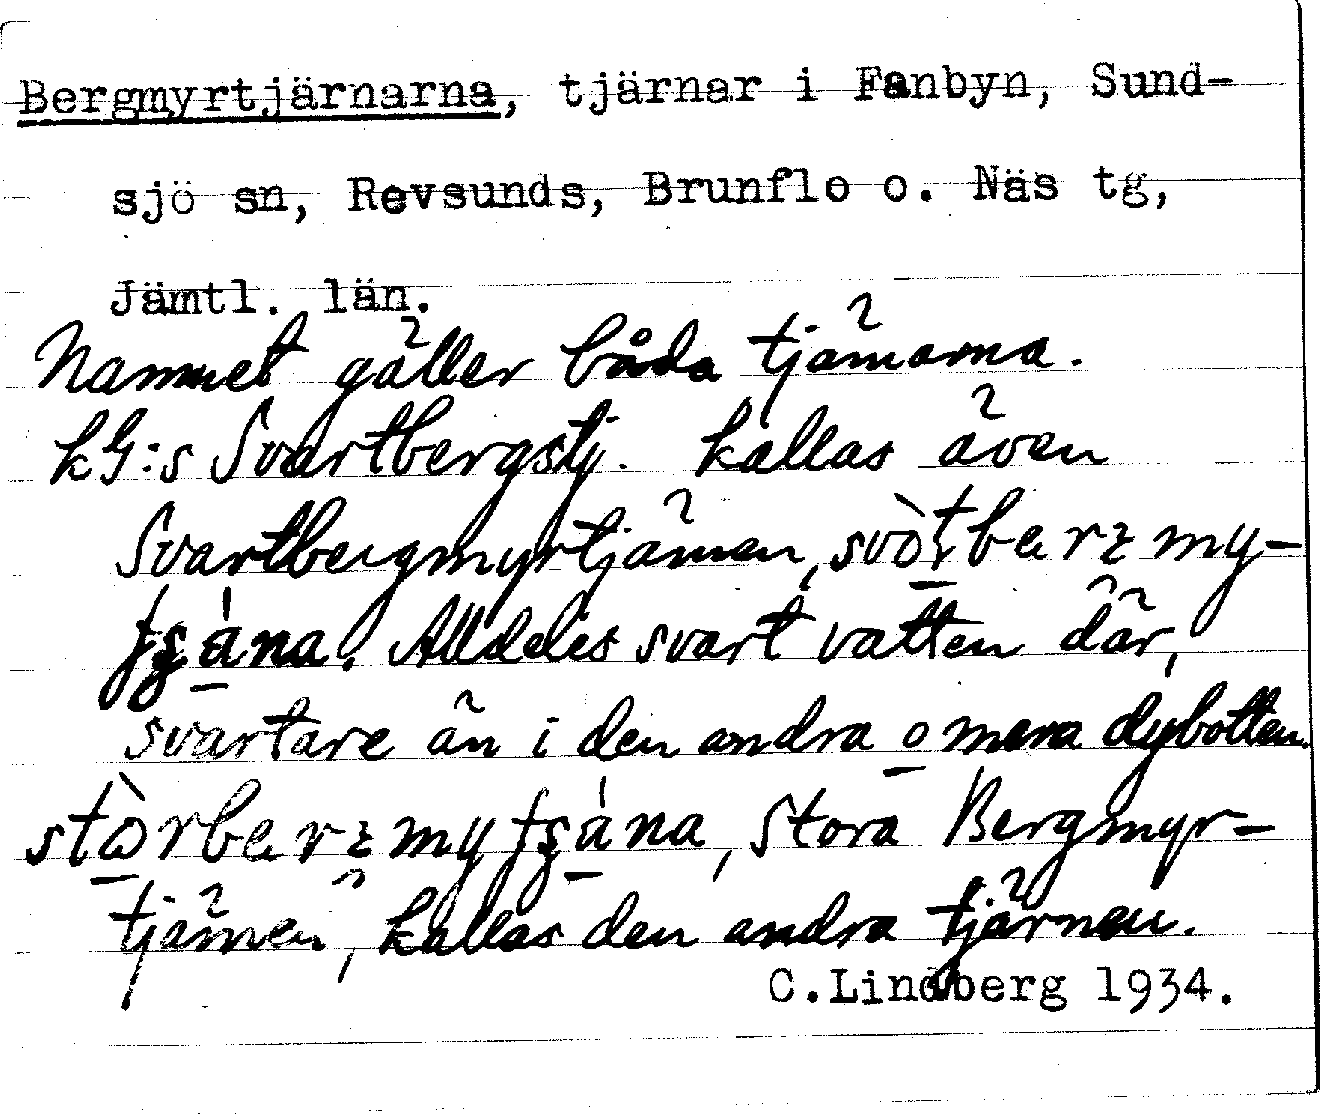 Bergmyrtjärnarna, tjärnar i Fanbyn, Sund-
sjö sn, Revsunds, Brunflo o. Näs tg,
Jämtl. län.
Namnet gäller båda tjärnarna.
kG:s Svartbergstj. kallas även
Svartbergmyrtjärnen, svòtbærzmy-
ʃʂána. Alldeles svart vatten där,
svartare än i den andra o mera dybotten.
stòrbærzmyʃʂána, Stora Bergmyr-
tjärnen, kallas den andra tjärnen.
C.Lindberg 1934.